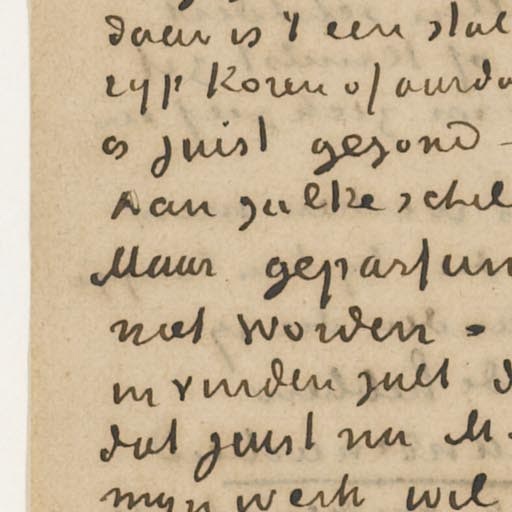 daar is 't een stal
ryp koren of aarda
is juist gezond -
Aan zulke schil
Maar geparfum
niet worden.
in vinden zult d
dat juist nu M.
myn werk wil